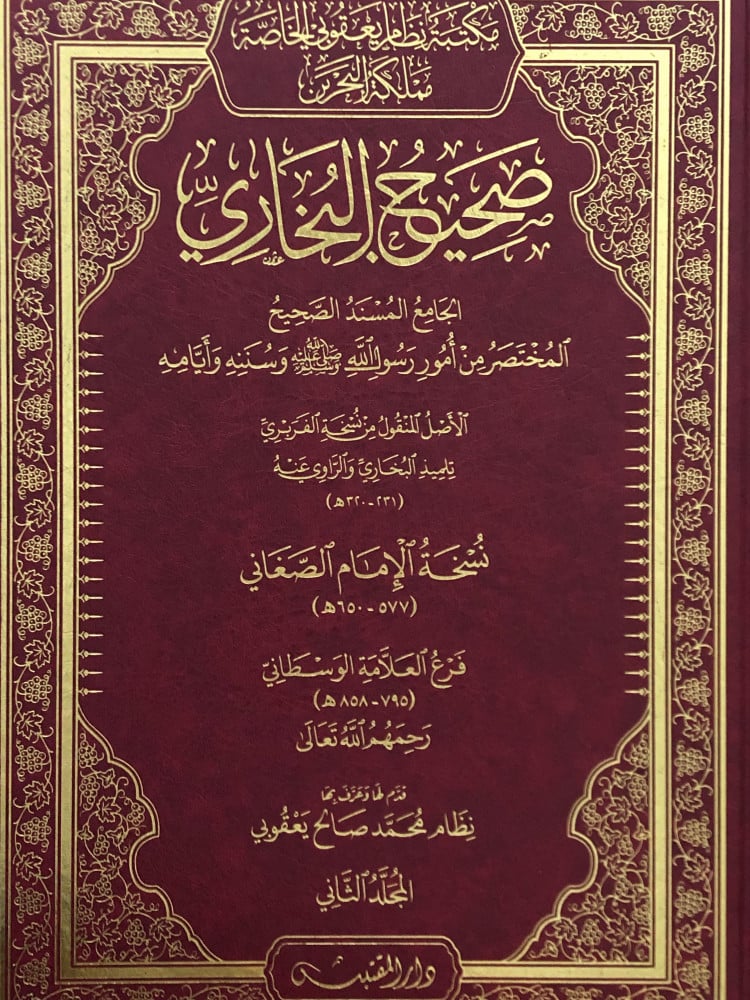 مكتبة نظام يعقوبي الخاصة
مملكة البحرين
صَحِيحُ البُخَارِيّ
الجَامِعُ المُسْنَدُ الصَّحِيحُ
المُخْتَصَرُ مِنْ أُمُورِ رَسُولِ اللَّهِ ﷺ وَسُنَنِهِ وَأَيَّامِهِ
الأَصْلُ المَنْقُولُ مِنْ نُسْخَةِ الفَرَبْرِيِّ
تِلْمِيذِ البُخَارِيِّ وَالرَّاوِي عَنْهُ
(٢٣١-٣٢٠هـ)
نُسْخَةُ الإِمَامِ الصَّغَانِي
(٥٧٧-٦٥٠هـ)
فَرْعُ العَلَّامَةِ الوَسْطَانِيّ
(٧٩٥-٨٥٨هـ)
رَحِمَهُمُ اللَّهُ تَعَالَى
قدّم لها وَعَرَّفَ بِهَا
نِظَام مُحَمَّد صَالِح يَعْقُوبِي
المُجَلَّدُ الثَّانِي
دار المقتبس